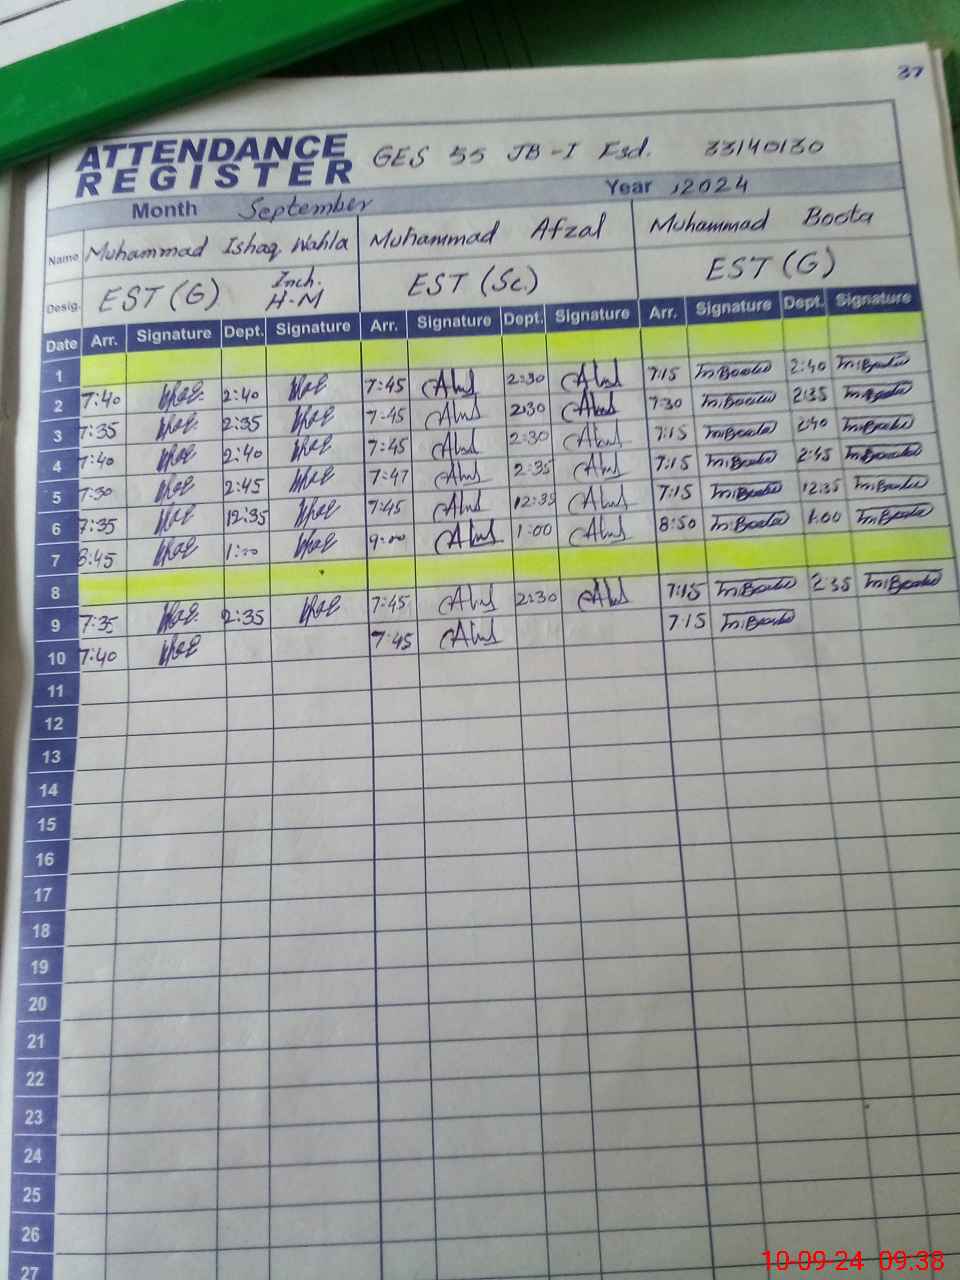 37
ATTENDANCE REGISTER GES 55 JB-I Fsd. 33140130
Month September Year 2024
Name Muhammad Ishaq Wahla Muhammad Afzal Muhammad Boota
Desig. EST (G) Inch. H-M EST (Sc.) EST (G)
Date Arr. Signature Dept. Signature Arr. Signature Dept. Signature Arr. Signature Dept. Signature
1
2 7:40 2:40 7:45 2:30 7:15 M.Boota 2:40 M.Boota
3 7:35 2:35 7:45 2:30 7:30 M.Boota 2:35 M.Boota
4 7:40 2:40 7:45 2:30 7:15 M.Boota 2:40 M.Boota
5 7:30 2:45 7:47 2:35 7:15 M.Boota 2:45 M.Boota
6 7:35 12:35 7:45 12:35 7:15 M.Boota 12:35 M.Boota
7 8:45 1:00 9:00 1:00 8:50 M.Boota 1:00 M.Boota
8
9 7:35 2:35 7:45 2:30 7:15 M.Boota 2:35 M.Boota
10 7:40 7:45 7:15 M.Boota
11
12
13
14
15
16
17
18
19
20
21
22
23
24
25
26
27
10-09-24 09:38